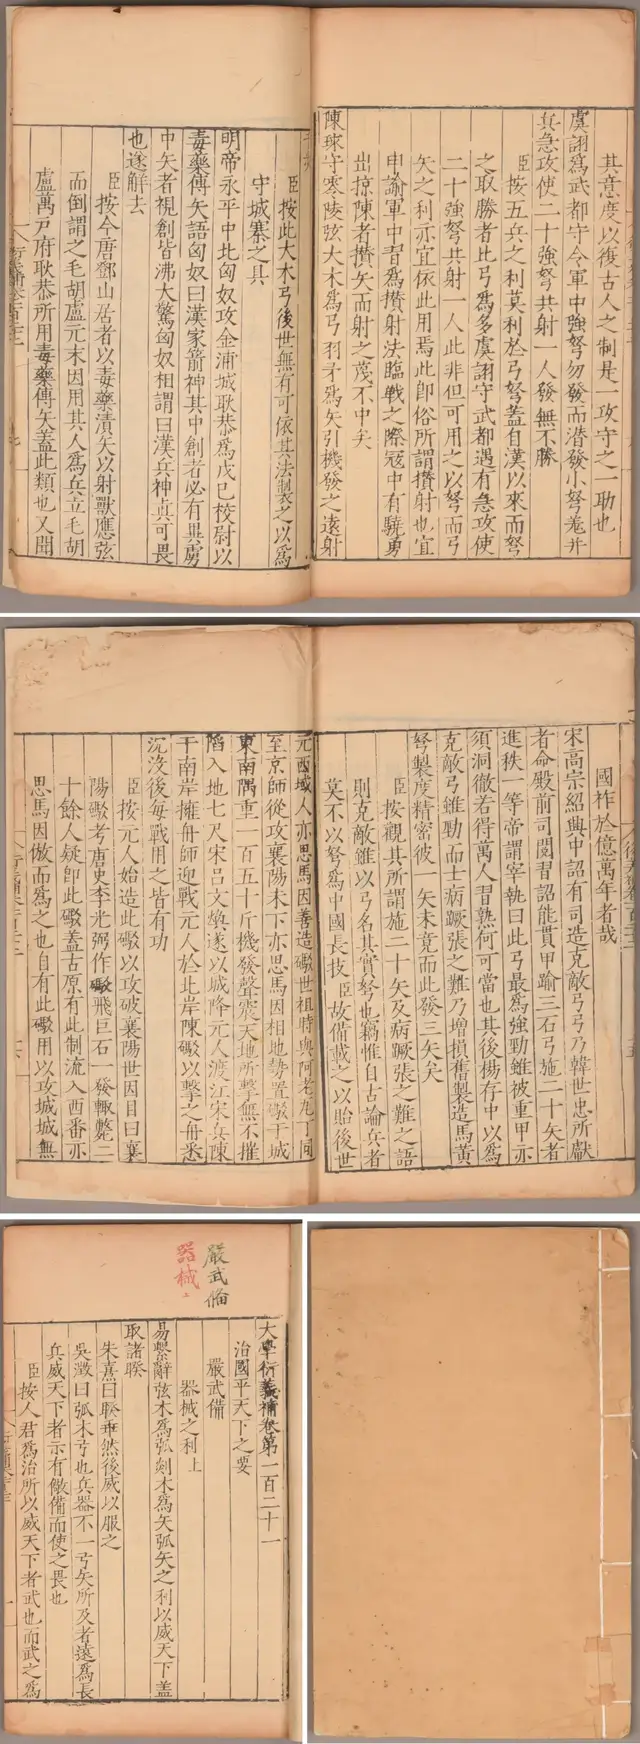 其意度以復古人之制是一攻守之一助也
虞詡為武都守令軍中強弩勿發而潛發小弩羗并
兵急攻使二十強弩共射一人發無不勝
臣按五兵之利莫利於弓弩蓋自漢以來而弩
之取勝者比弓為多虞詡守武都遇有急攻使
二十強弩共射一人此非但可用之以弩而弓
矢之利亦宜依此用焉此即俗所謂攢射也宜
申諭軍中習為攢射法臨戰之際冦中有驍勇
出掠陳者攢矢而射之蔑不中矣
陳球守零陵弦大木為弓羽矛為矢引機發之遠射
臣按此大木弓後世無有可依其法製之以為
守城寨之具
明帝永平中北匈奴攻金浦城耿恭為戊巳校尉以
毒藥傅矢語匈奴曰漢家箭神其中創者必有異虜
中矢者視創皆沸大驚匈奴相謂曰漢兵神真可畏
也遂解去
臣按今唐鄧山居者以毒藥漬矢以射獸應弦
而倒謂之毛胡盧元末因用其人為兵立毛胡
盧萬戸府耿恭所用毒藥傅矢蓋此類也又聞
國祚於億萬年者哉
宋高宗紹興中詔有司造克敵弓弓乃韓世忠所獻
者命殿前司閱習詔能貫甲踰三石弓施二十矢者
進秩一等帝謂宰執曰此弓最為強勁雖被重甲亦
須洞徹若得萬人習熟何可當也其後楊存中以為
克敵弓雖勁而士病蹶張之難乃增損舊製造馬黃
弩製度精密彼一矢未竟而此發三矢矣
臣按觀其所謂施二十矢及病蹶張之難之語
則克敵雖以弓名其實弩也竊惟自古論兵者
莫不以弩為中國長技臣故備載之以貽後世
元西域人亦思馬因善造礮世祖時與阿老瓦丁同
至京師從攻襄陽未下亦思馬因相地勢置礮于城
東南隅重一百五十斤機發聲震天地所擊無不摧
陷入地七尺宋呂文煥遂以城降元人渡江宋兵陳
于南岸擁舟師迎戰元人於北岸陳礮以擊之舟悉
沉没後每戰用之皆有功
臣按元人始造此礮以攻破襄陽世因目曰襄
陽礮考唐史李光弼作礮飛巨石一發輒斃二
十餘人疑即此礮蓋古原有此制流入西番亦
思馬因倣而為之也自有此礮用以攻城城無
嚴武僃
器械上
大學衍義補卷第一百二十一
治國平天下之要
嚴武備
器械之利上
易繫辭弦木為弧剡木為矢弧矢之利以威天下蓋
取諸睽
朱熹曰睽乖然後威以服之
吳澂曰弧木弓也兵器不一弓矢所及者遠為長
兵威天下者示有儆備而使之畏也
臣按人君為治所以威天下者武也而武之為